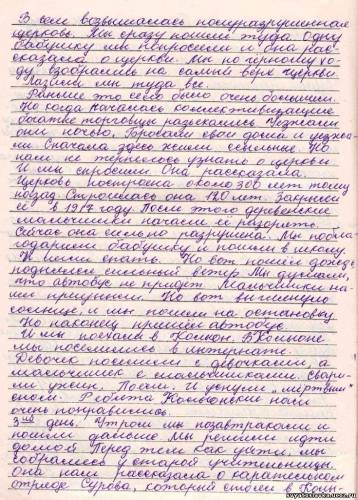 В селе возвышалась полуразрушенная
церковь. Мы сразу пошли туда. Одну
бабушку мы попросили и она рас-
сказала о церкви. Мы по черному хо-
ду взобрались на самый верх церкви.
Лазили мы туда все.
Раньше это село было очень большим.
Но когда началась коллективизация
богатые торговцы разъехались. Уезжали
они ночью, бросали свои дома и уезжа-
ли. Сначала здесь жили ссыльные. Но
нам не терпелось узнать о церкви.
И мы спросили. Она рассказала.
Церковь построена около 300 лет тому
назад. Строилась она 120 лет. Закрыли
её в 1917 году. После этого деревенские
мальчишки начали её разорять.
Сейчас она сильно разрушена. Мы побла-
годарили бабушку и пошли в школу.
И легли спать. Но вот пошёл дождь
поднялся сильный ветер. Мы думали,
что автобус не придёт. Мальчишки на-
ши приуныли. Но вот выглянуло
солнце, и мы пошли на остановку.
Но наконец пришёл автобус.
И мы поехали в
Мы поселились в интернате.
Девочек поселили с девочками, а
мальчишек с мальчишками. Свари-
ли ужин. Поели. И уснули „мёртвым"
сном. Ребята нам
очень понравились.
3ий день. Утром мы позавтракали и
пошли дальше. Мы решили идти
домой. Перед тем как уйти, мы
собрались у старой учительницы.
Она нам рассказала о карательном
отряде Сурова, который стоял в